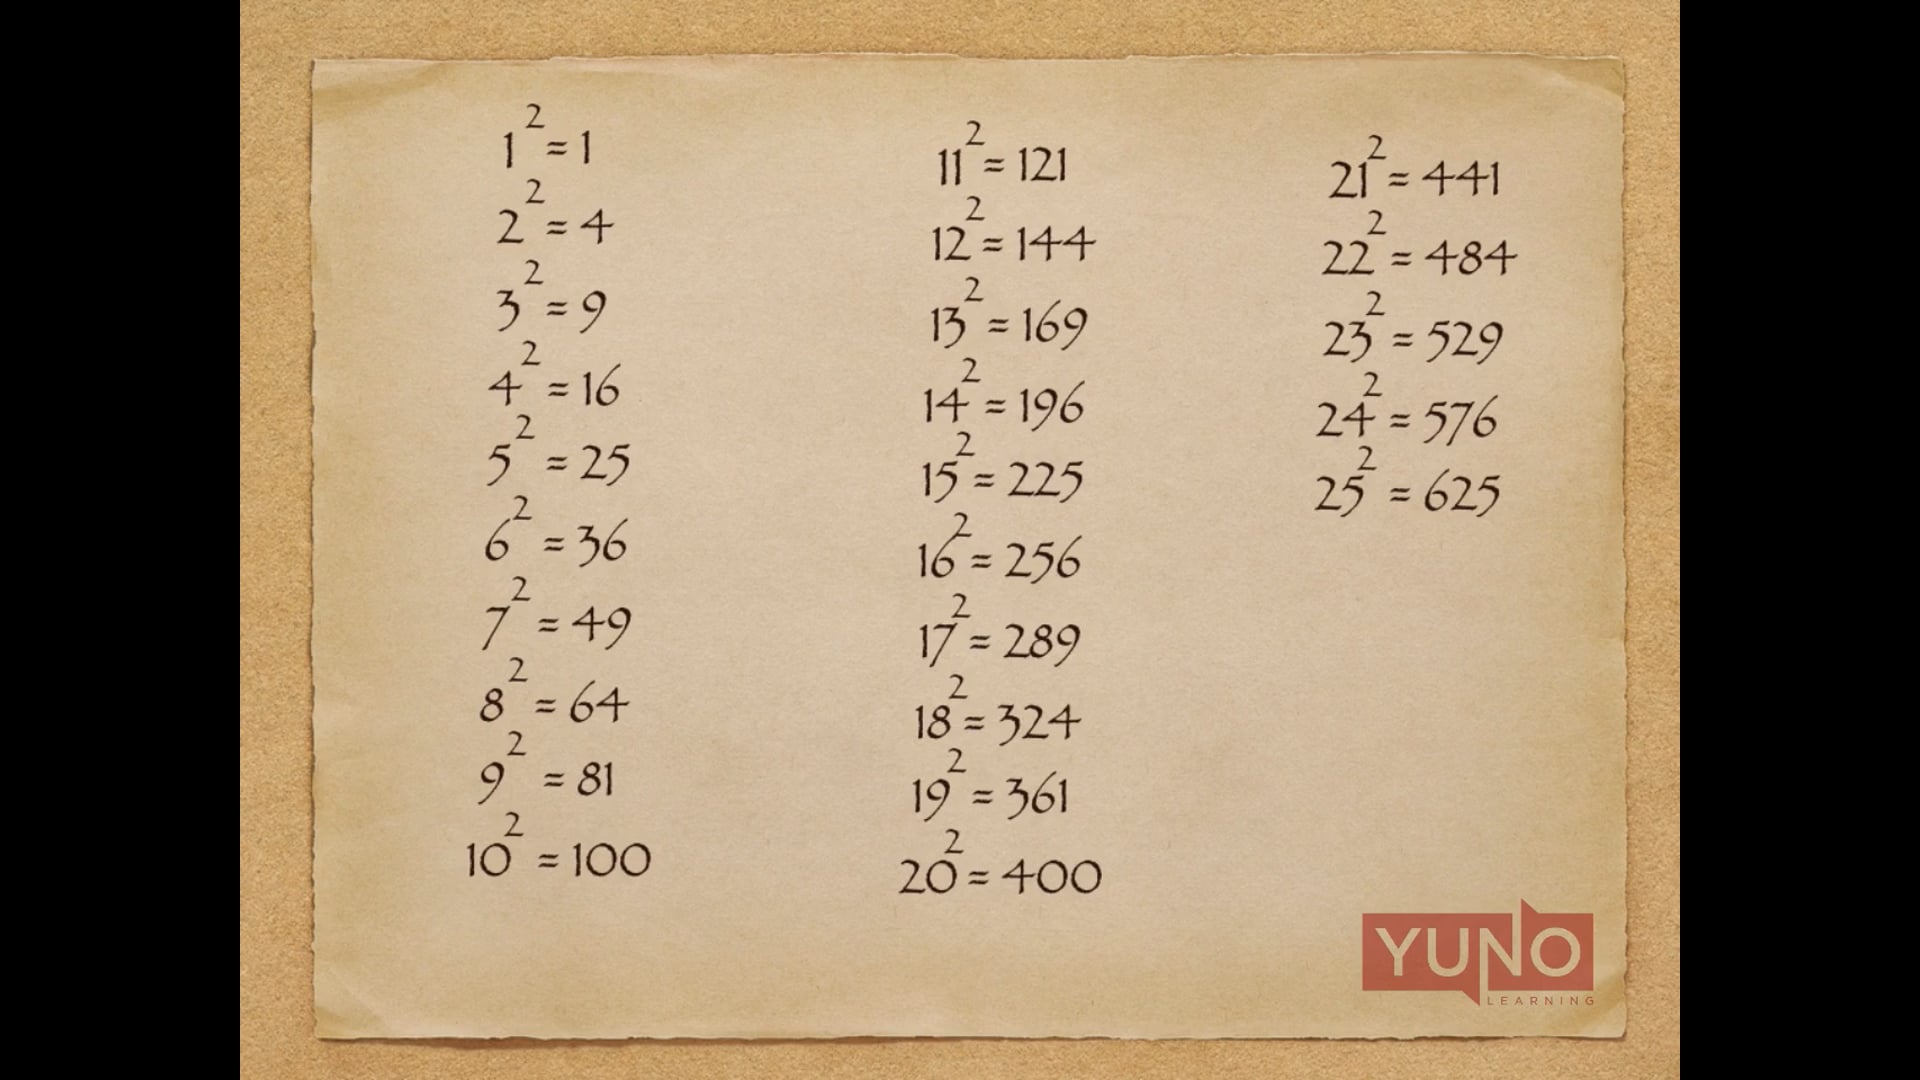 1² = 1
2² = 4
3² = 9
4² = 16
5² = 25
6² = 36
7² = 49
8² = 64
9² = 81
10² = 100
11² = 121
12² = 144
13² = 169
14² = 196
15² = 225
16² = 256
17² = 289
18² = 324
19² = 361
20² = 400
21² = 441
22² = 484
23² = 529
24² = 576
25² = 625
YUNO
LEARNING